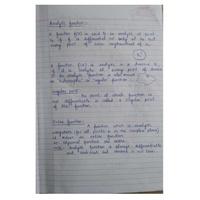 Analytic function :-
A function f(z) is said to be analytic at point
z₀ if f is differential not only at z₀ but
every point of some neighbourhood of z₀
A function f(z) is analytic in a domain D,
if it is analytic at every point of D.
An analytic function is also known as
holomorphic or regular function
Singular point :-
The point at which function is
not differentiable is called a singular point
of the function.
Entire function :-
A function which is analytic
everywhere (for all points z in the complex plane)
is known as entire function.
ex- Polynomial functions are entire.
Note - Analytic function is always differentiable
and continuous but converse is not true.